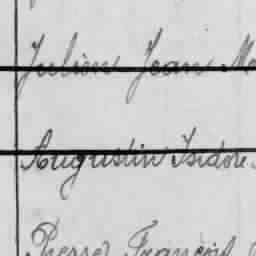 Julien Jean
Augustin Isidore
Pierre François